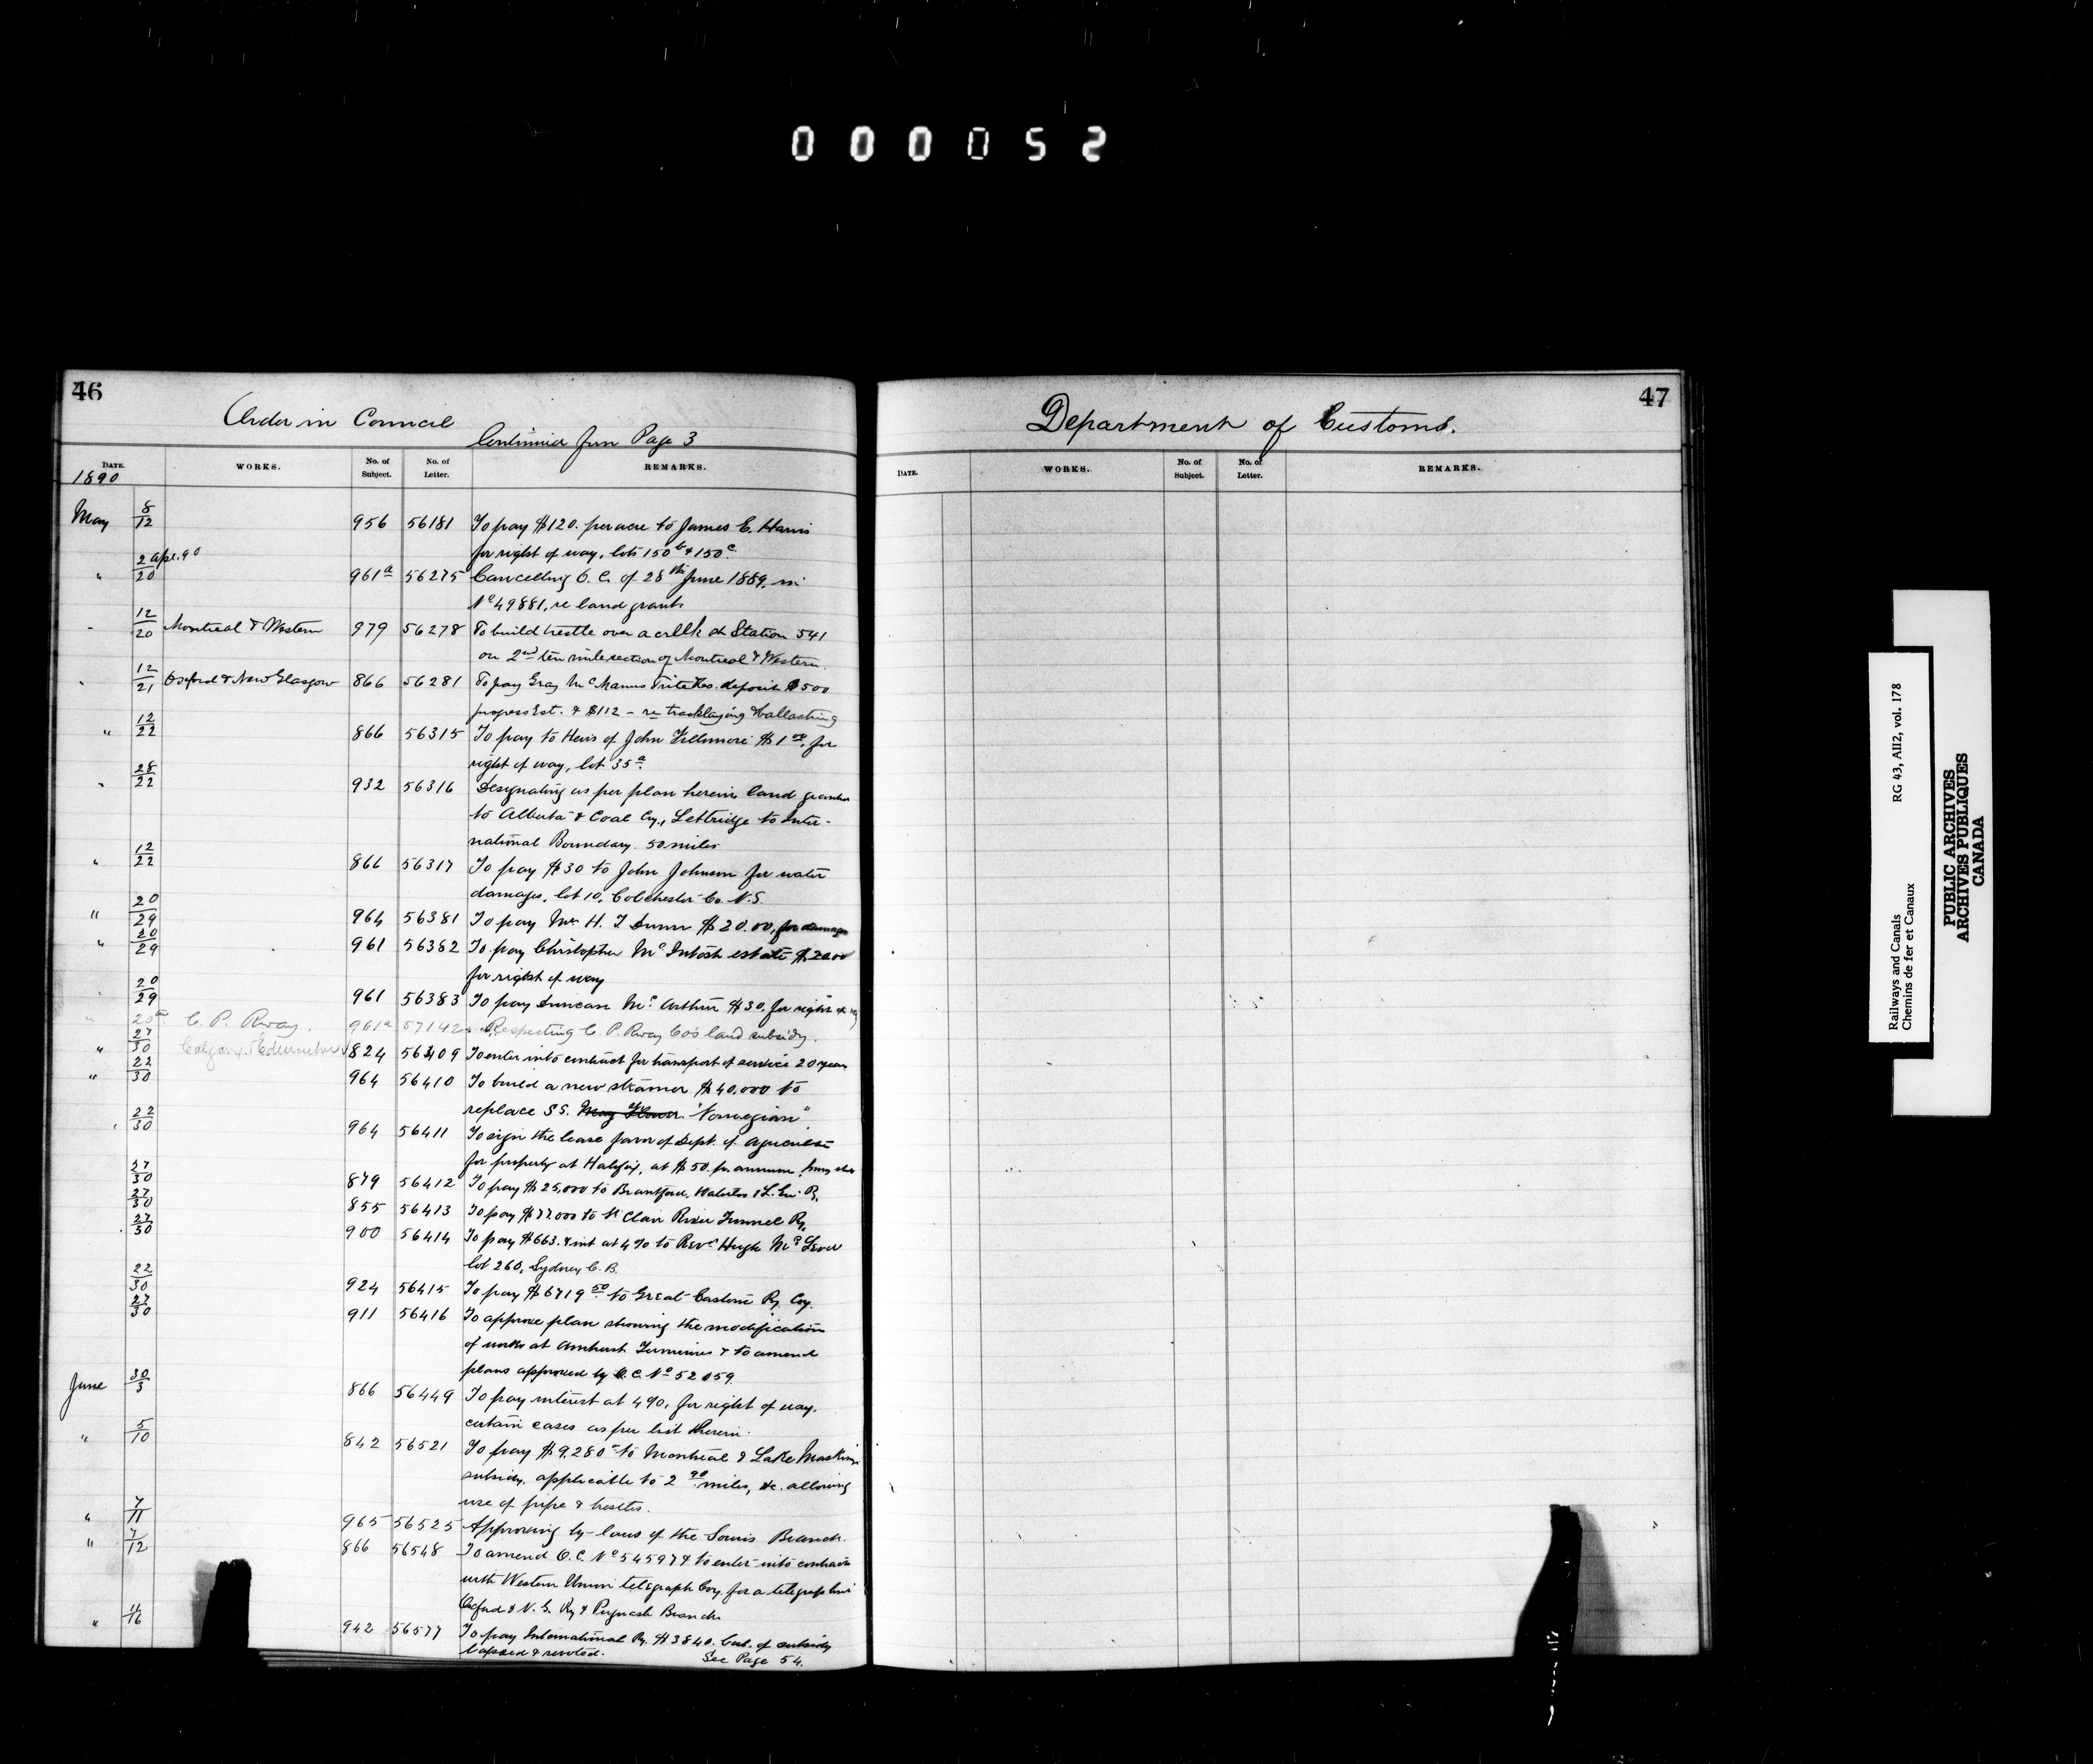 000052
46
Order in Council
Continued from Page 3
DATE. WORKS. No. of Subject. No. of Letter. REMARKS.
1890
May 8/12 956 56181 To pay $120. per acre to James E. Harris
for right of way, lots 150b & 150c
2 Apl. 90
" 20 961a 56275 Cancelling O. C. of 28th June 1889, in
No 49881, re land grants
" 12/20 Montreal & Western 979 56278 To build trestle over a creek at Station 541
on 2nd ten mile section of Montreal & Western.
" 12/21 Oxford & New Glasgow 866 56281 To pay Gray McManus deposit $500
progress Est. & $112 - re tracklaying & ballasting
" 12/22 866 56315 To pay to Heirs of John Fillmore $1 for
right of way, lot 35a
" 28/22 932 56316 Designating as per plan herein land
to Alberta & Coal Cy., Lethbridge to Inter-
national Boundary. 50 miles
" 12/22 866 56317 To pay $30 to John Johnson for water
damages, lot 10, Colchester Co. N.S.
" 20/29 964 56381 To pay Mr. H. T. Dunn $20.00, for damages
" 20/29 961 56382 To pay Christopher McIntosh estate $2000
for right of way
20/29 961 56383 To pay Duncan McArthur $30, for right of way
" 20 C. P. Rway. 961a 57142 Respecting C. P. Rway Co's land subsidy.
" 27/30 Calgary & Edmonton 824 56409 To enter into contract for transport & service 20 years
" 22/30 964 56410 To build a new steamer $40,000 to
replace S.S. May Flower "Norwegian"
" 22/30 964 56411 To sign the lease favor of Dept. of Agriculture
for property at Halifax, at $50. per annum
27/30 879 56412 To pay $25,000 to Brantford, Waterloo & L. Erie Ry.
27/30 855 56413 To pay $77,000 to St Clair River Tunnel Ry.
" 27/30 900 56414 To pay $663. & int at 4% to Revd Hugh McLeod
lot 260, Sydney C. B.
22/30 924 56415 To pay $6719 50 to Great Eastern Ry. Coy.
27/30 911 56416 To approve plan showing the modification
of works at Amherst Terminus & to amend
plans approved by O. C. No 52059.
June 30/3 866 56449 To pay interest at 4%, for right of way.
certain cases as per list therein.
" 5/10 842 56521 To pay $9,280 to Montreal & Lake Maskinongé
subsidy, applicable to 2 90 miles, &c. allowing
use of pipe & trestles.
" 7/11 965 56525 Approving by-laws of the Souris Branch.
" 7/12 866 56548 To amend O.C. No 54597 & to enter into contract
with Western Union telegraph Coy. for a telegraph line
Oxford & N. G. Ry & Pugwash Branch
" 11/16 942 56577 To pay International Ry. $3840. bal. of subsidy
lapsed & revoted.
See Page 54.
47
Department of Customs.
DATE. WORKS. No. of Subject. No. of Letter. REMARKS.
Railways and Canals RG 43, AII2, vol. 178
Chemins de fer et Canaux
PUBLIC ARCHIVES
ARCHIVES PUBLIQUES
CANADA